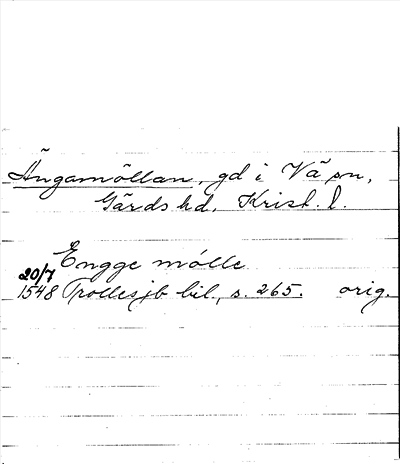 Ängamöllan, gd i Vä sn,
Gärds hd, Krist. l.
Engge mölle
20/7
1548 Trollesjb bil., s. 265. orig.